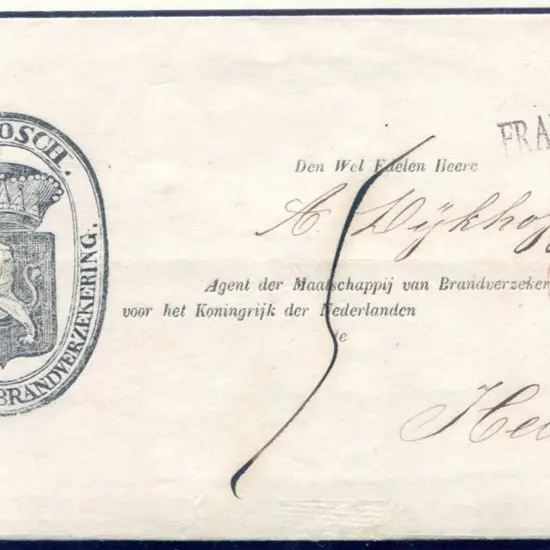 OSCH.
BRANDVERZEKERING.
FRA
Den Wel Edelen Heere
A. Dijkhof
Agent der Maatschappij van Brandverzeker
voor het Koningrijk der Nederlanden
te
Hel